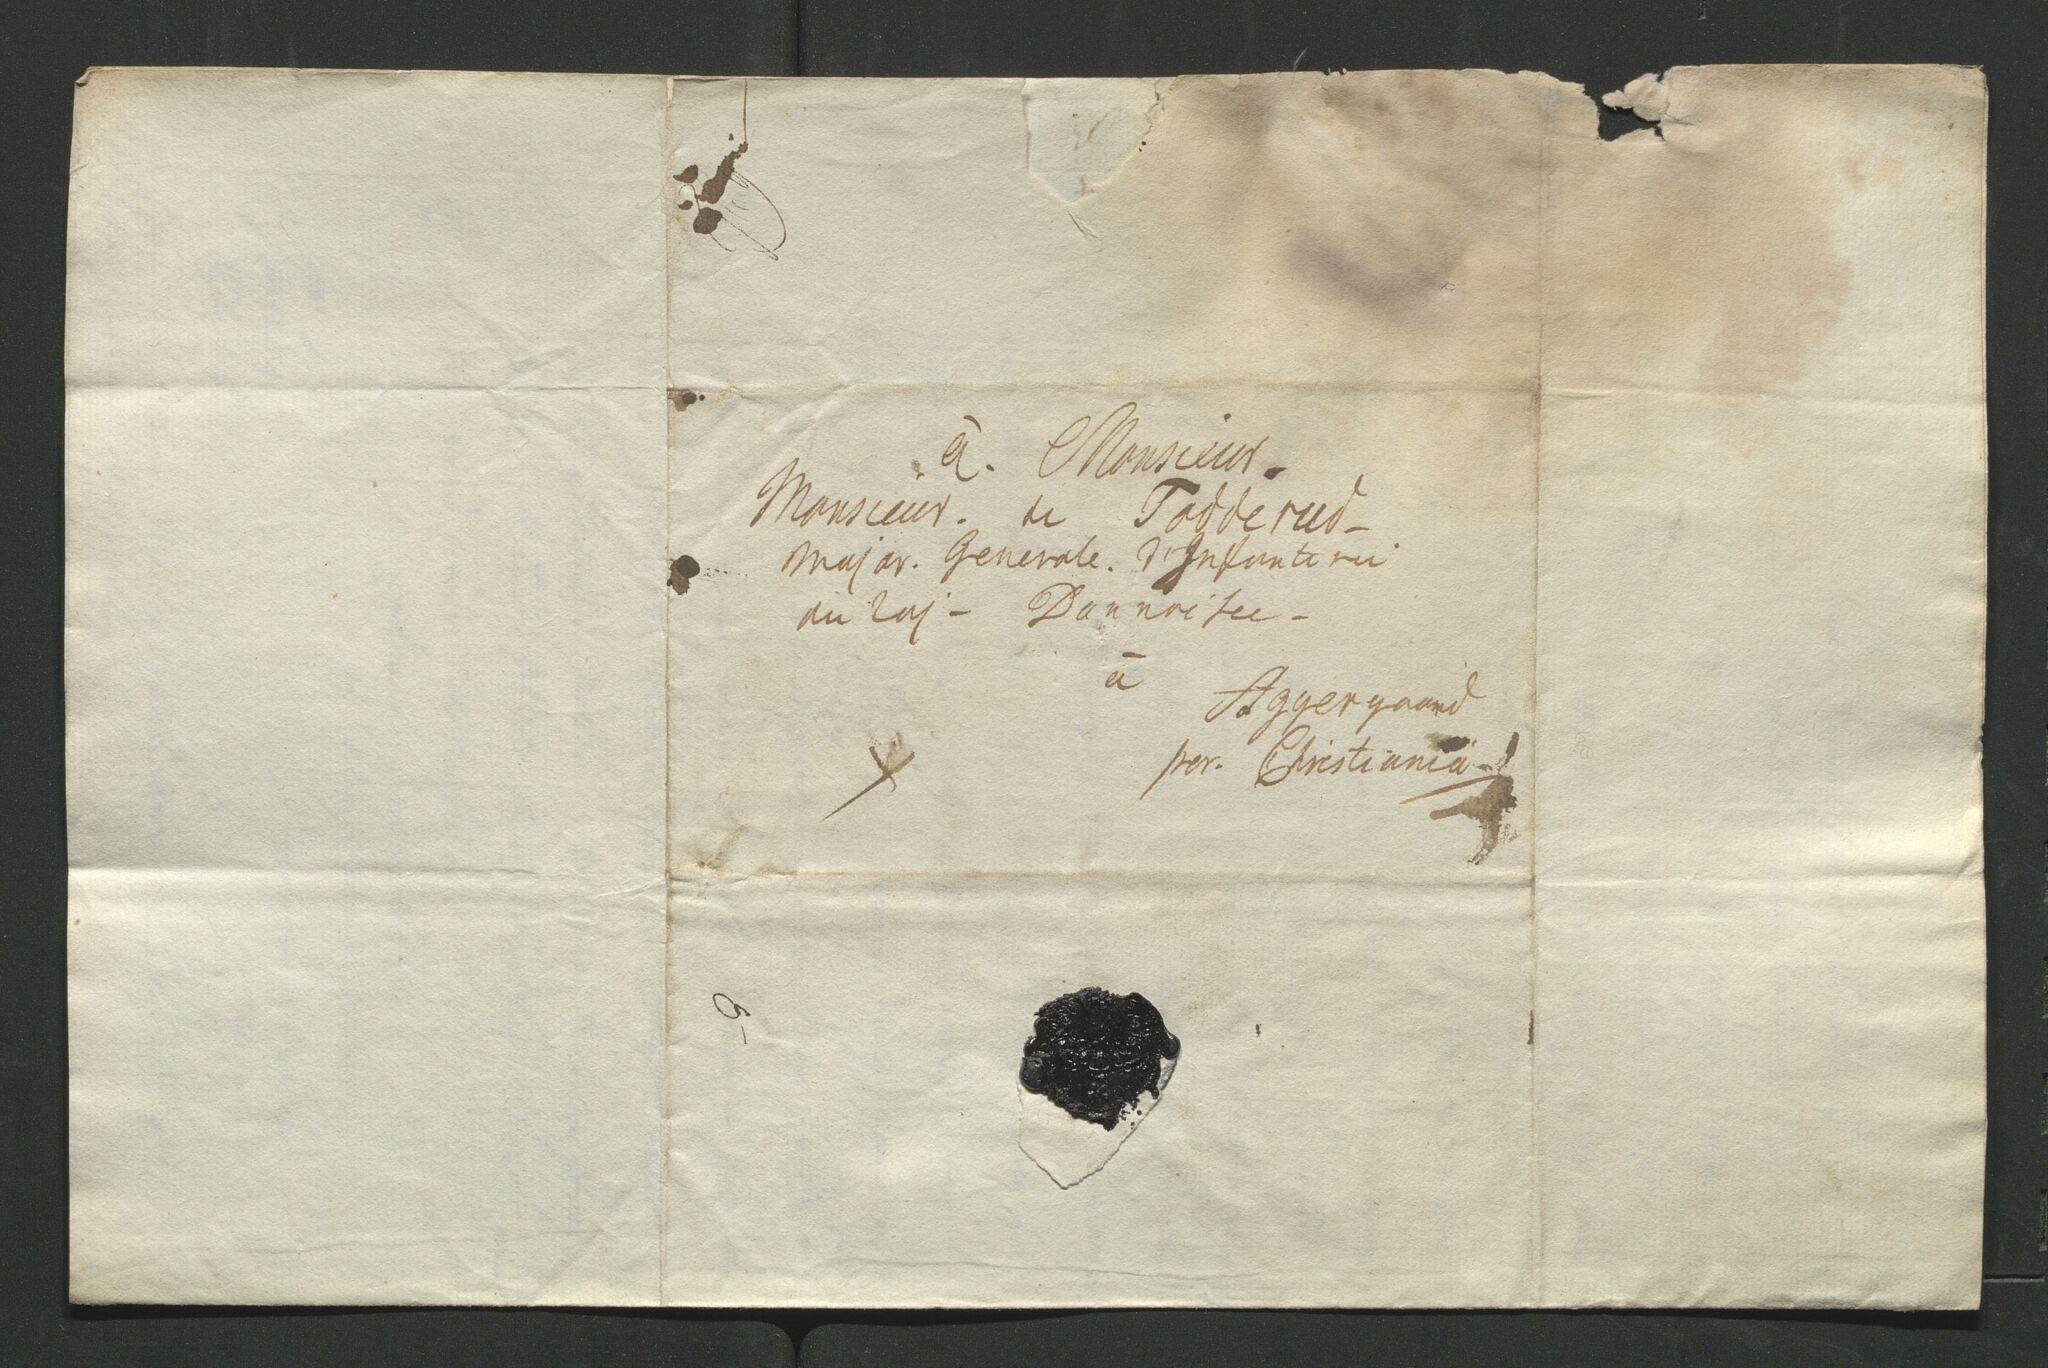 à. Monsieur.
Monsieur. de Todderud-
Major. Generale. d'Infanterii
du Roj- Dannoisee-
à
Aggergaard
per. Christiania-